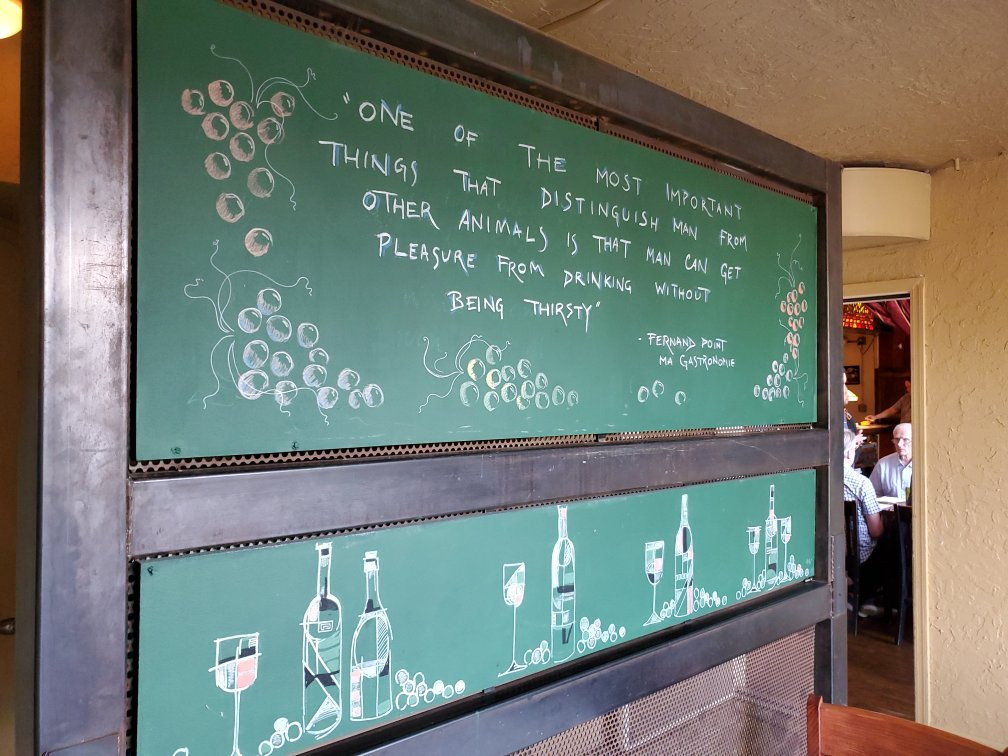 "ONE OF THE MOST IMPORTANT
THINGS THAT DISTINGUISH MAN FROM
OTHER ANIMALS IS THAT MAN CAN GET
PLEASURE FROM DRINKING WITHOUT
BEING THIRSTY"
- FERNAND POINT
MA GASTRONOMIE